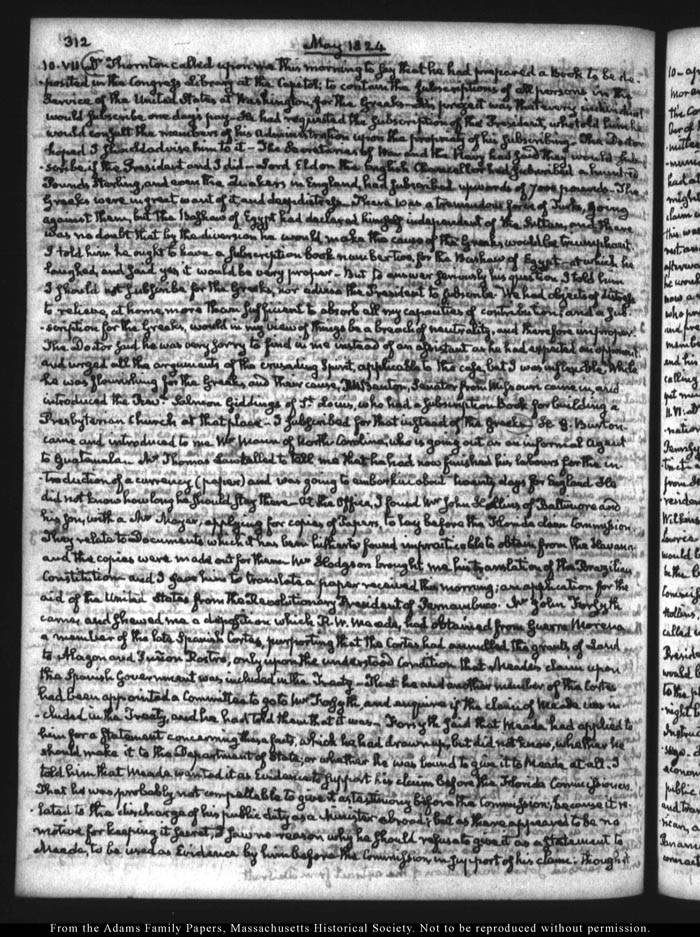 312
May 1824
10. VII. Dr Thornton called upon me this morning to say that he had prepared a Book to be de-
-posited in the Congress Library at the Capitol; to contain the subscriptions of all persons in the
Service of the United States at Washington, for the Greeks. His project was that every individual
would subscribe one days pay. He had requested the subscription of the President, who told him he
would consult the members of his Administration upon the propriety of his subscribing. The Doctor
hoped I should advise him to it. The Secretaries of War and the Navy had said they would sub-
-scribe if the President and I did. Lord Eldon the English Chancellor had subscribed a hundred
Pounds Sterling, and even the Quakers in England, had subscribed upwards of 7000 pounds. The
Greeks were in great want of it and deep distress. There was a tremendous force of Turks, going
against them, but the Bashaw of Egypt had declared himself independent of the Sultan, and there
was no doubt that by the diversion he would make the cause of the Greeks would be triumphant.
I told him he ought to have a subscription book number two, for the Bashaw of Egypt—at which he
laughed, and said yes it would be very proper. But to answer seriously his question I told him
I should not subscribe for the Greeks, nor advise the President to subscribe. We had objects of distress
to relieve, at home, more than sufficient to absorb all my capacities of contribution; and a sub-
-scription for the Greeks, would in my view of things be a breach of neutrality, and therefore improper.
The Doctor said he was very sorry to find in me instead of an assistant as he had expected an opponent,
and urged all the arguments of the crusading Spirit, applicable to the case, but I was inflexible. While
he was flourishing for the Greeks and their cause, Mr Benton, Senator from Missouri came in, and
introduced the Revd. Salmon Giddings of St. Louis, who had a subscription Book for building a
Presbyterian Church at that place. I subscribed for that instead of the Greeks. H. G. Burton
came and introduced to me Wm Mann of North Carolina, who is going out as an informal Agent
to Guatamala. Mr Thomas Law called to tell me that he had now finished his labours for the in-
-troduction of a currency (paper) and was going to embark in about twenty days for England. He
did not know how long he should stay there. At the Office, I found Mr John Hollins of Baltimore and
his son, with a Mr Mayer, applying for copies of Papers, to lay before the Florida claim Commission.
They relate to Documents which it has been hitherto found impracticable to obtain from the Havana
and the copies were made out for them. Mr Hodgson brought me his translation of the Brazilian
Constitution and I gave him to translate a paper received this morning; an application for the
aid of the United States from the Revolutionary President of Pernambuco. Mr John Forsyth
came, and shewed me a deposition which R. W. Meade, had obtained from Guerra Moreno
a member of the late Spanish Cortes, purporting that the Cortes had annulled the grants of Land
to Alagon and Puñon Rostro, only upon the understood Condition that Meade's claim upon
the Spanish Government was included in the Treaty. That he and another member of the Cortes
had been appointed a Committee to go to Mr Forsyth, and enquire if the claim of Meade was in-
-cluded in the Treaty, and he had told them that it was. Forsyth said that Meade had applied to
him for a Statement concerning these facts, which he had drawn up, but did not know, whether he
should make it to the Department of State; or whether he was bound to give it to Meade at all. I
told him that Meade wanted it as Evidence to support his claim before the Florida Commissioners.
That he was probably not compellable to give it as testimony before the Commission; because it re-
-lated to the discharge of his public duty as a Minister abroad; but as there appeared to be no
motive for keeping it secret, I saw no reason why he should refuse to give it as a Statement to
Meade, to be used as Evidence by him before the Commission in support of his claim: though it
From the Adams Family Papers, Massachusetts Historical Society. Not to be reproduced without permission.